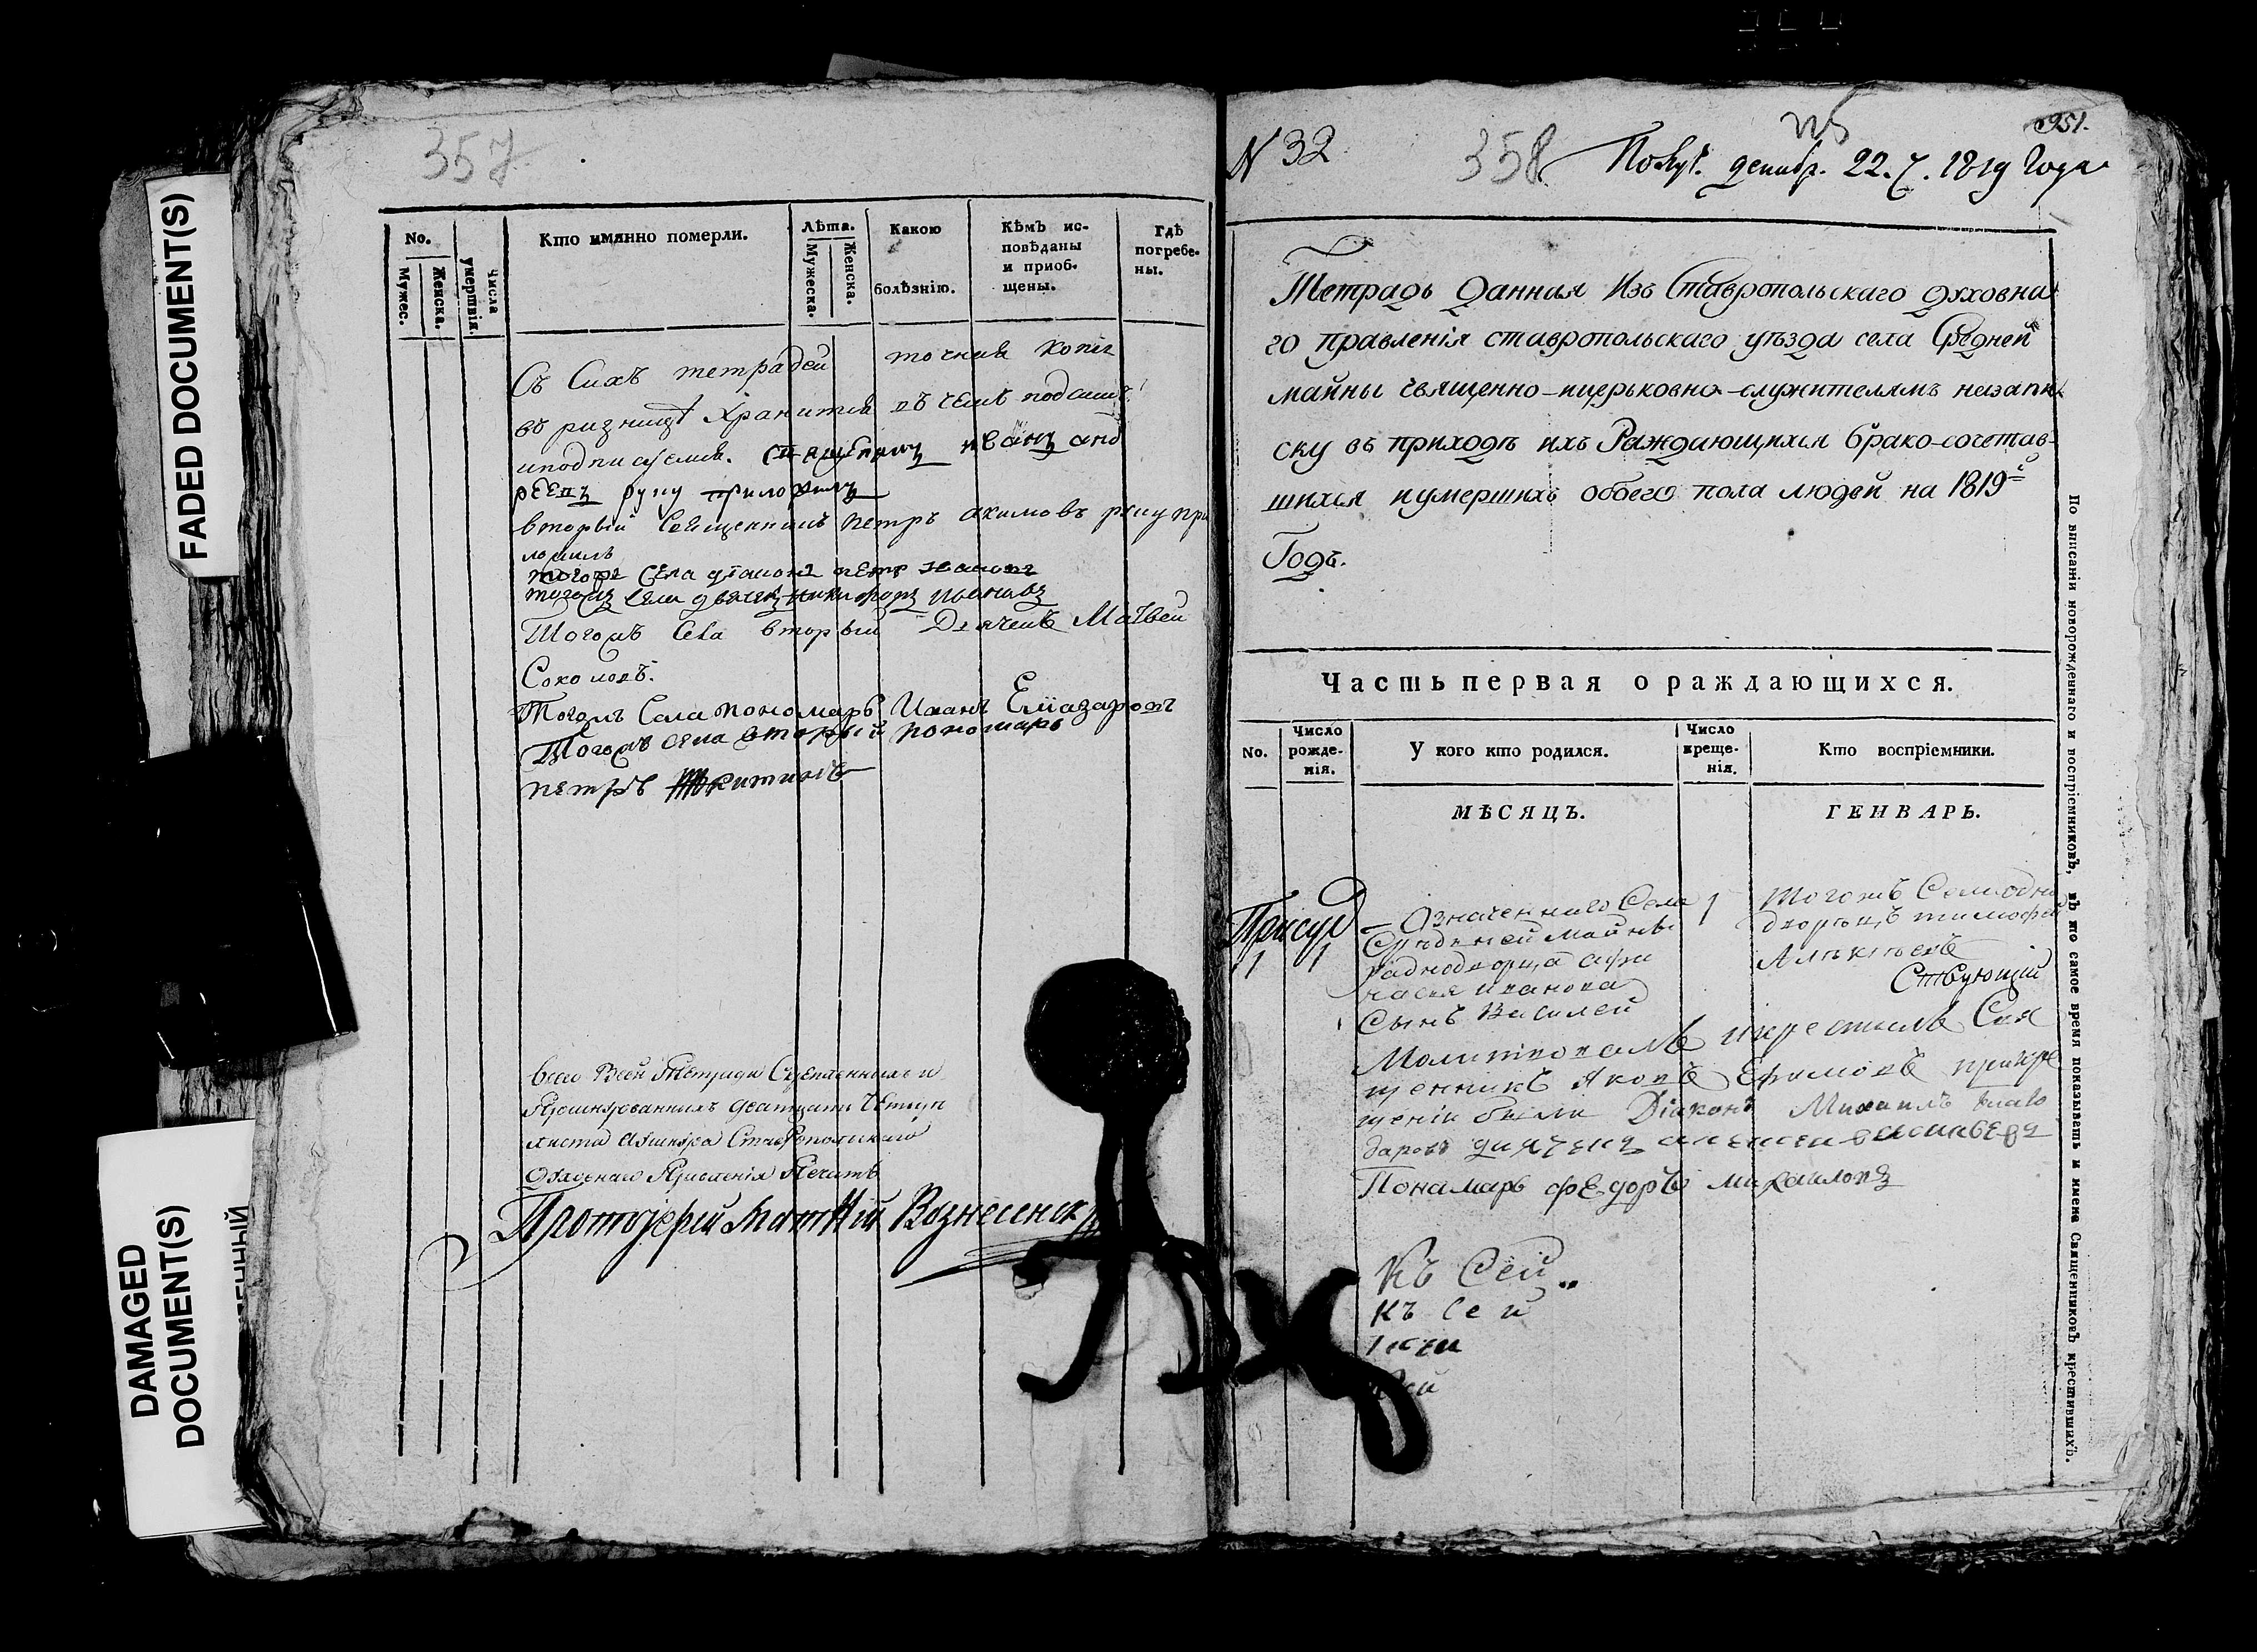 FADED DOCUMENT(S)
DAMAGED
DOCUMENT(S)
357
No.
Мужес.
Женска.
Числа умершвія.
Кто имянно померли.
Лѣта.
Мужеска.
Женска.
Какою
болѣзнію.
Кѣмъ ис-
повѣданы
и приоб-
щены.
Гдѣ
погребе-
ны.
Съ Сихъ тетрадей точная копія
въ ризницѣ хранится въ чемъ
иподписуемся. иванъ анд
реевъ руку приложилъ
вторый Священникъ Петръ акимовъ руку при
ложилъ
тогожъ села діаконъ петръ
тогожъ села дьячекъ никифоръ ивановъ
Тогожъ села вторый Дьячекъ Матвей
Соколовъ.
Тогожъ Села пономарь Иванъ Елиазаровъ
Тогожъ села вторый пономарь
петръ Никитинъ
всего Всей Тетради Скрепленныхъ и
Прошнурованныхъ дватцать Четыри
листа Ставропольскаго
Духовнаго Правленія Печать
Протоіерей Вознесенск
N 32
358
951.
Получ. декабр. 22. ч. 1819 Года
Тетрадь Данная Изъ Ставропольскаго духовна
го правленія ставропольскаго уѣзда села Средней
майны священно-ицерьковно-служителямъ назапи
ску въ приходѣ ихъ Раждающихся брако-сочетав-
шихся иумершихъ обоего пола людей на 1819й
Годъ.
Часть первая о раждающихся.
No.
Число
рожде-
нія.
У кого кто родился.
Число
креще-
нія.
Кто воспріемники.
МѢСЯЦЪ.
ГЕНВАРЬ.
Присуд
1 1
Означеннаго Села
Средней майны
Иванова
Сынъ Василей
1
Тогожъ Села одно
дворецъ тимофей
Алексѣевъ
Ствующій
Молитвовалъ икрестилъ Свя
щенникъ Яковъ Ефимовъ прикре
щеніи были Діаконъ Михаилъ благо
даровъ дьячекъ алексеи
Понамарь федоръ михаиловъ
Къ Сей
къ Се й
По вписаніи новорожденнаго и воспріемниковъ, въ то самое время показывать и имена Священниковъ крестившихъ.